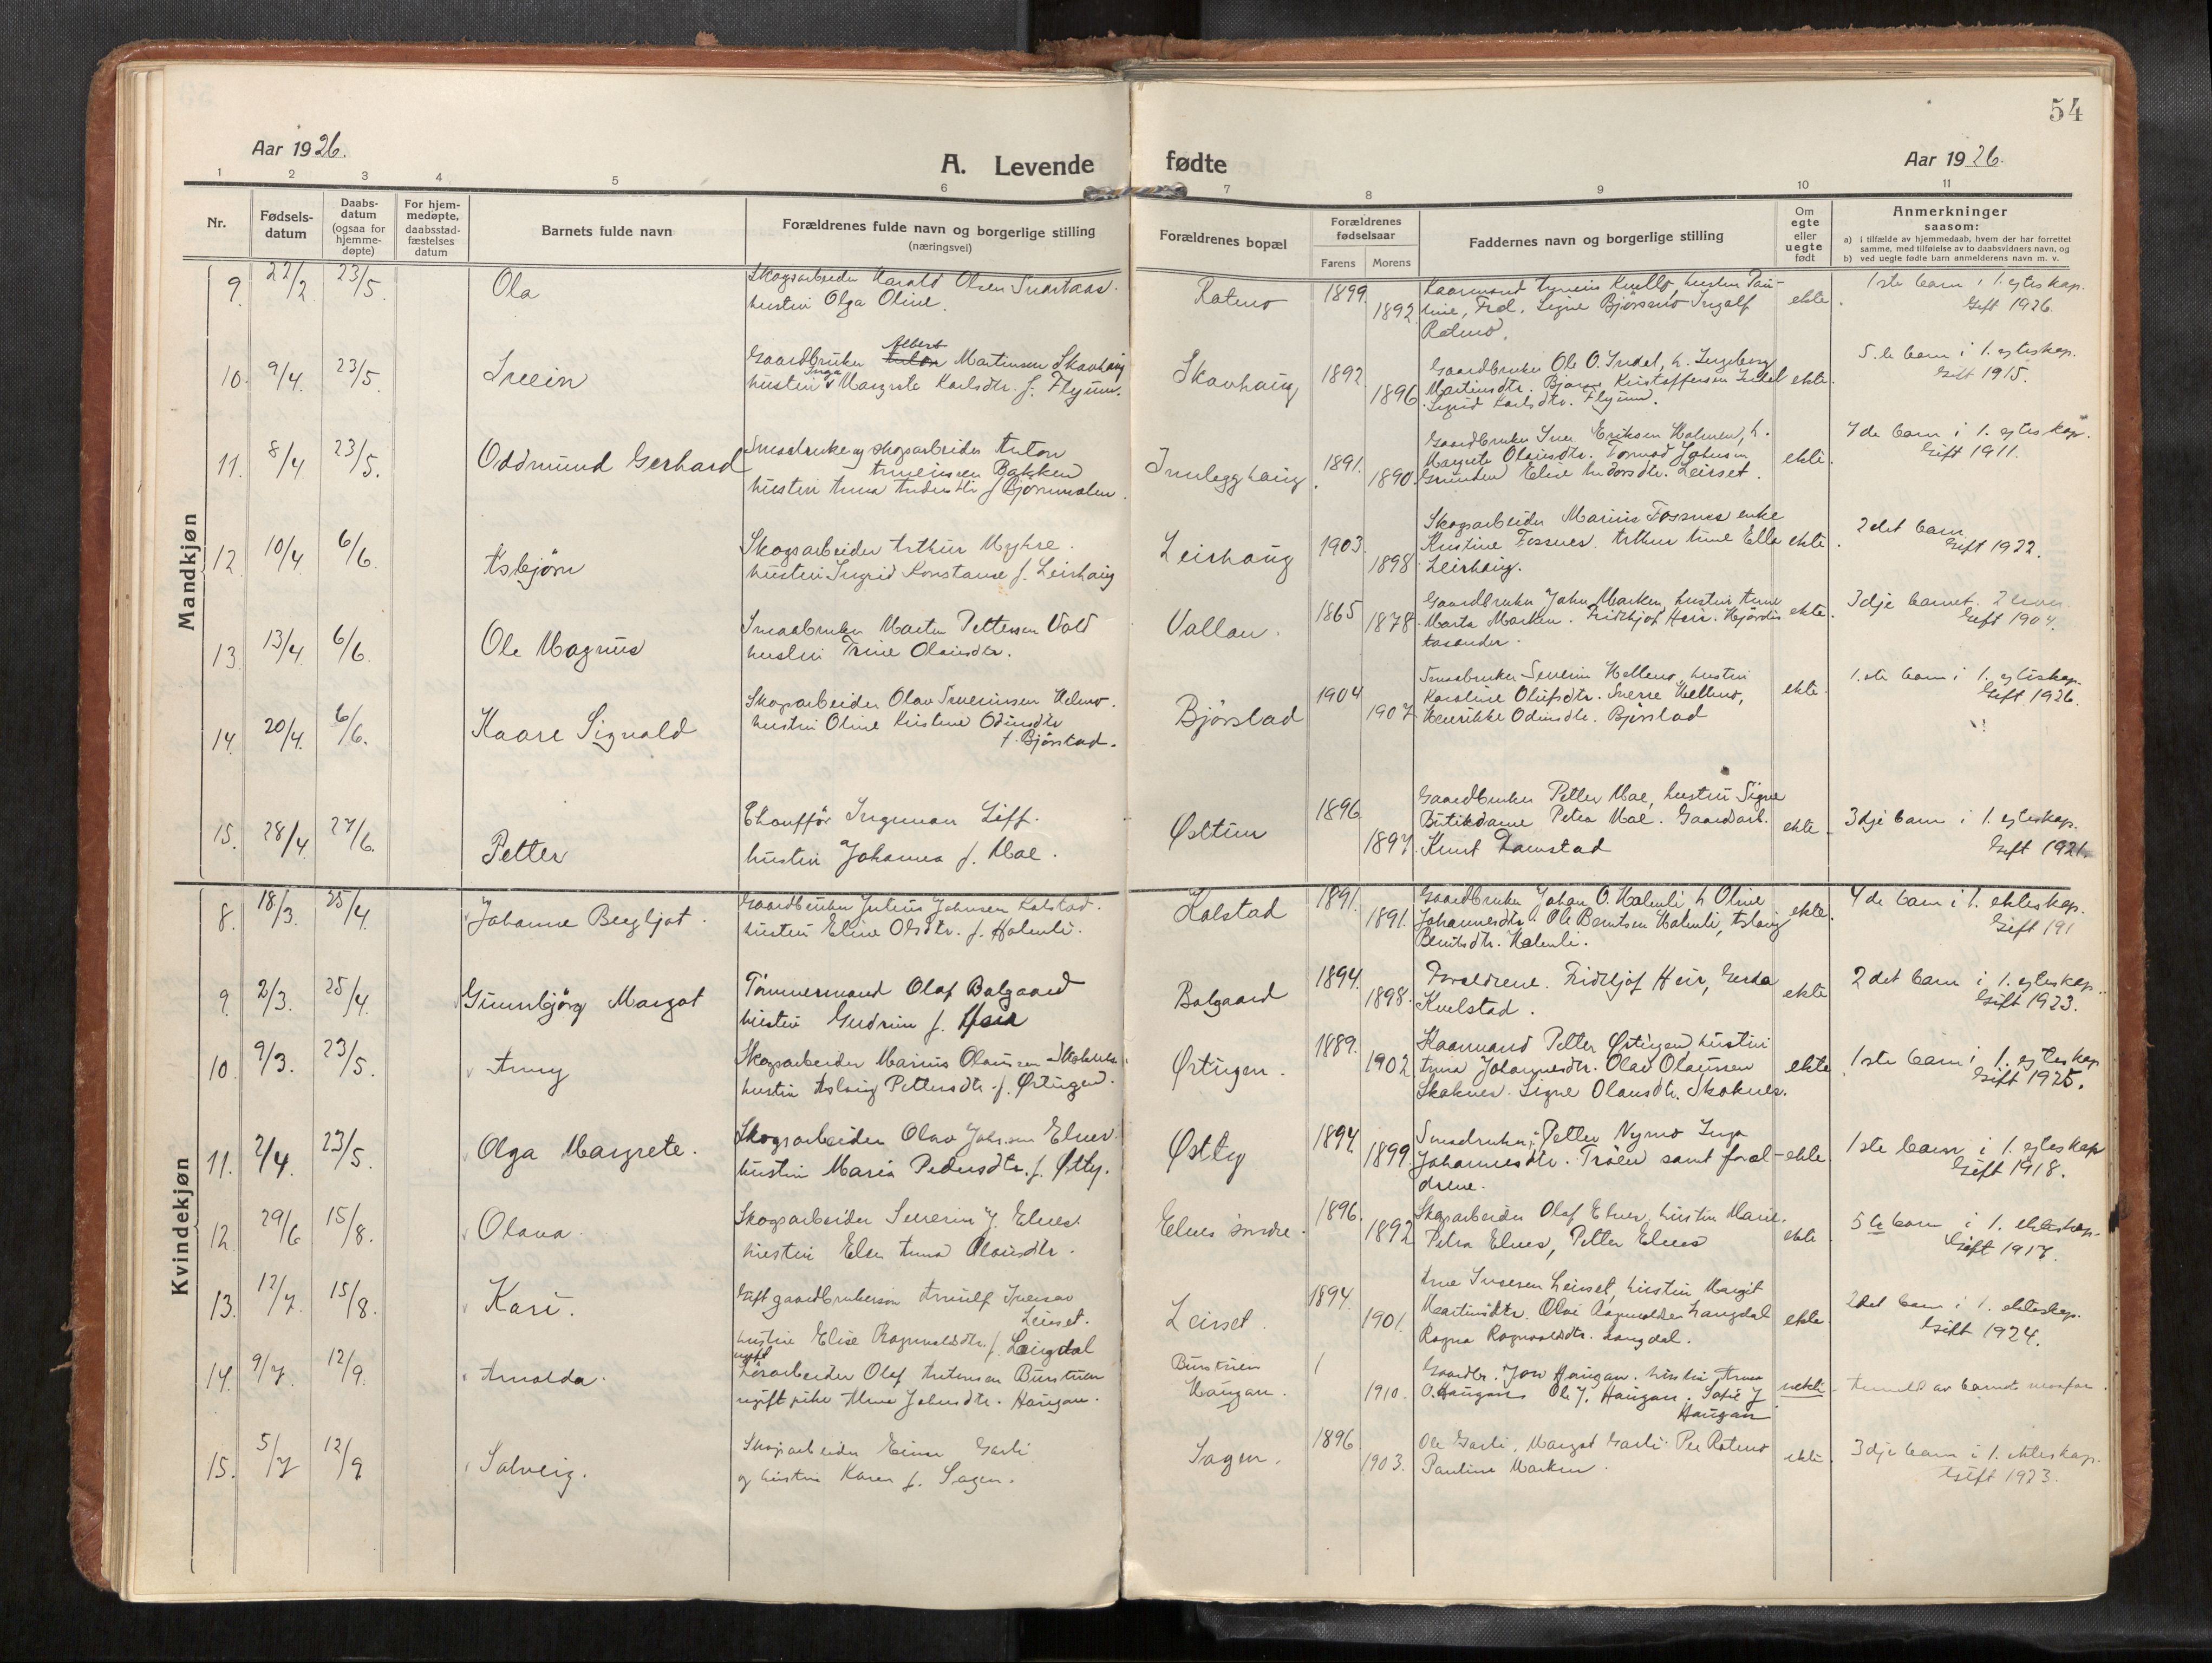 54
Aar 1926.
A. Levende fødte
Aar 1926.
1 2 3 4 5 6 7 8 9 10 11
Nr.
Fødsels-
datum
Daabs-
datum
(ogsaa for
hjemme-
døpte)
For hjem-
medøpte,
daabsstad-
fæstelses
datum
Barnets fulde navn
Forældrenes fulde navn og borgerlige stilling
(næringsvei)
Forældrenes bopæl
Forældrenes
fødselsaar
Farens Morens
Faddernes navn og borgerlige stilling
Om
egte
eller
uegte
født
Anmerkninger
saasom:
a) i tilfælde av hjemmedaab, hvem der har forrettet
samme, med tilføielse av to daabsvidners navn, og
b) ved uegte fødte barn anmelderens navn m. v.
Mandkjøn
9. 22/2 23/5. Ola
Skogsarbeider Harald Olsen
hustru Olga Oline.
Ratmo 1899. 1892.
Signe Bjørsmo Ingolf
Ratmo.
ekte.
1ste barn i 1. egteskap.
Gift 1926.
10. 9/4. 23/5. Svein
Gaardbruker Albert Martinsen Skavhaug
hustru Inga Margrete Karlsdtr. f. Flyum.
Skavhaug 1892. 1896
Gaardbruker Ole O. Indal, h. Ingeborg
Martinsdtr. Bjarne Kristoffersen Indal
Sigrid Karlsdtr. Flyum.
ekte.
5.te barn i 1. egteskap.
Gift 1915.
11. 8/4 23/5. Oddmund Gerhard
Smaabruker og skogsarbeider Anton
Arneinsen Bakken
hustru Anna f. Bjørnmelen.
Innlegghaug 1891. 1890.
Gaardbruker Iver Eriksen Holmen, h.
Margrete Olausdtr. Tormod Johnsen
Grunden Elise Leirset.
ekte.
7de barn i 1. egteskap.
Gift 1911.
12. 10/4 6/6. Asbjørn
Skogsarbeider Arthur Myhre.
hustru Ingrid Konstanse f. Leirhaug
Leirhaug 1903. 1898
Skogsarbeider Marius Fossnes enke
Kristine Fossnes. Arthur Arne Ella
Leirhaug.
ekte.
2det barn.
Gift 1922.
13. 13/4 6/6. Ole Magnus
Smaabruker Martin Pettersen Vold
hustru Trine Olausdtr.
Vollan. 1865 1878.
Gaardbruker John Marken, hustru Anne
Marta Marken. Fridthjof Heir. Hjørdis
ekte.
3dje barnet. 2 lever
Gift 1904.
14. 20/4. 6/6. Kaare Signald
Skogsarbeider Olav Severinsen Helmo.
hustru Oline Kristine Odinsdtr
f. Bjørstad.
Bjørstad 1904 1907.
Smaabruker Severin Hellmo, hustru
Karoline Olufsdtr. Sverre Hellmo,
Henrikke Odinsdtr. Bjørstad
ekte.
1.ste barn i 1. egteskap.
Gift 1926.
15. 28/4 27/6. Petter
Chauffør Ingeman Liff.
hustru Johanna f. Moe.
Østtun 1896. 1897.
Gaardbruker Petter Moe, hustru Signe
Butikdame Petra Moe. Gaardsarb.
Knut Damstad
ekte.
3dje barn i 1. egteskap.
Gift 1921.
Kvindekjøn
8. 18/3. 25/4. Johanne Bergljot.
Gaardbruker Julius Johnsen Kolstad.
hustru Eline Olsdtr. f. Holmli.
Kolstad 1891. 1891.
Gaardbruker Johan O. Holmli h Oline
Johannesdtr. Ole Berntsen Holmli, Aslaug
Berntsdtr. Holmli.
ekte.
4de barn i 1. ekteskap.
Gift 191
9. 2/3. 25/4. Gunnbjørg Margot
Tømmermand Olaf Bolgaard
hustru Gudrun f. Heir
Bolgaard 1894. 1898.
Foreldrene. Fridthjof Heir, Gerda
Kvelstad.
ekte
2det barn i 1. egteskap.
Gift 1923.
10. 9/3. 23/5. Anny
Skogsarbeider Marius Olaussen Skaknes.
hustru Aslaug Pettersdtr. f. Ørtugen.
Ørtugen. 1889. 1902
Kaarmand Petter Ørtugen, hustru
Anna Johannesdtr. Olav Olaussen
Skaknes. Signe Olausdtr. Skaknes.
ekte
1ste barn i 1. egteskap
Gift 1925.
11. 2/4. 23/5. Olga Margrete.
Skogsarbeider Olav Johnsen Elnes
hustru Maria Pedersdtr. f. Østby.
Østby 1894. 1899.
Smaabruker Petter Nymo Inga
Johannesdtr. Trøen samt forel-
drene.
ekte.
1ste barn i 1. egteskap
Gift 1918.
12. 29/6 15/8. Olava.
Skogsarbeider Severin J. Elnes
hustru Elen Anna Olausdtr.
Elnes søndre. 1896. 1892
Skogsarbeider Olaf Elnes, hustru Marie.
Petra Elnes, Petter Elnes
ekte
5te barn i 1. ekteskap.
Gift 1917.
13. 12/7. 15/8. Kari.
Gift gaardbrukersøn Arnulf Iversen
Leirset.
hustru Elise Ragnvaldsdtr. f. Langdal
Leirset. 1894. 1901.
Arne Iversen Leirset, hustru Margit
Martinsdtr. Olav Ragnvaldsen Langdal
Ragna Ragnvaldsdtr. Langdal.
ekte
2det barn i 1. ekteskap.
Gift 1924.
14. 9/7. 12/9. Arnolda.
ugift
Løsarbeider Olaf Antonsen Burstuen
ugift pike Anna Johnsdtr. Haugan.
Burstuen
Haugan. 1910.
Gaardbr. Jon Haugan. hustru Anna
O. Haugan Ole J. Haugan. Sofie J
Haugan
uekte.
Anmeldt av barnets morfar.
15. 5/7 12/9. Solveig.
Skogsarbeider Einar Garli
og hustru Karen f. Sagen.
Sagen. 1896 1903.
Ole Garli, Margot Garli. Per Ratmo
Pauline Marken.
ekte.
3dje barn i 1. ekteskap.
Gift 1923.